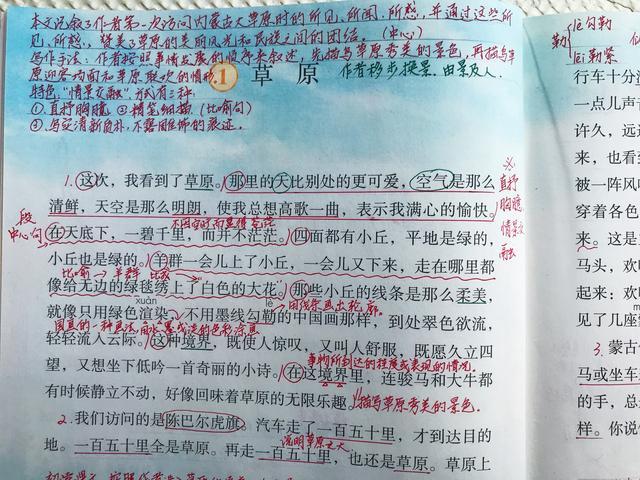 本文记叙了作者第一次访问内蒙古大草原时的所见、所闻、所感,并通过这些所
见、所感,赞美了草原的美丽风光和民族之间的团结。(中心)
写作手法:作者按照事情发展的顺序来叙述,先描写草原秀美的景色,再描写草
原迎客场面和草原联欢的情形。
作者移步换景.由景及人.
1 草原
特色:"情景交融"方式有三种.
①直抒胸臆 ②精笔细描.(比喻句)
③写实清新自朴,不露雕饰的痕迹.
1.这次,我看到了草原。那里的天比别处的更可爱,空气是那么
清鲜,天空是那么明朗,使我总想高歌一曲,表示我满心的愉快。
※直抒胸臆 情景交融
段中心句
在天底下,一碧千里,而并不茫茫。四面都有小丘,平地是绿的,
小丘也是绿的。羊群一会儿上了小丘,一会儿又下来,走在哪里都
比喻 羊群 比较
像给无边的绿毯绣上了白色的大花。那些小丘的线条是那么柔美,
xuàn lè
用线条画出轮廓.
就像只用绿色渲染,不用墨线勾勒的中国画那样,到处翠色欲流,
轻轻流入云际。这种境界,既使人惊叹,又叫人舒服,既愿久立四
事物所到达的程度或表现的情况.
望,又想坐下低吟一首奇丽的小诗。在这境界里,连骏马和大牛都
有时候静立不动,好像回味着草原的无限乐趣。
描写草原秀美的景色.
2.我们访问的是陈巴尔虎旗。汽车走了一百五十里,才到达目的
说明草原之大
地。一百五十里全是草原。再走一百五十里,也还是草原。草原上
勒
lè勾勒
lēi勒紧
行车十分
一点儿声
许久,远
来,也看到
被一阵风
穿着各色
来。这是
马头,欢
起来:欢
见了几座
3.蒙古
马或坐车
的手,总
样。你说